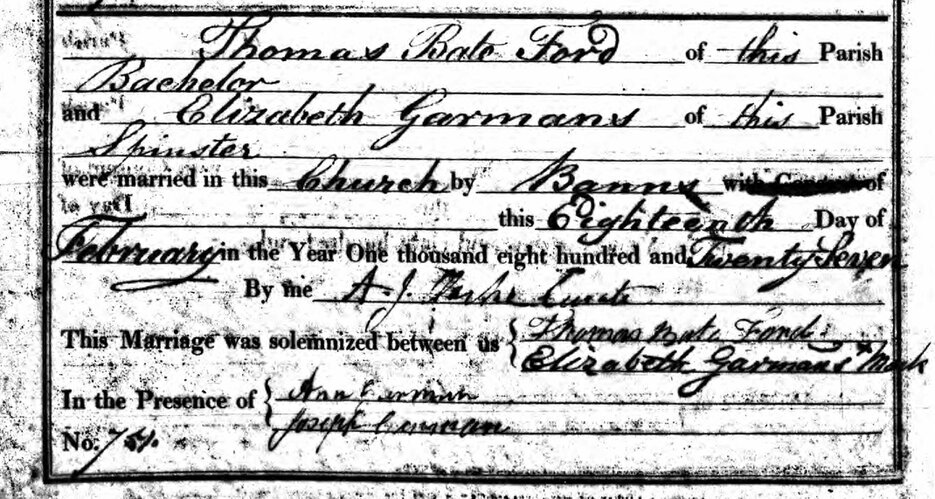 Thomas Bate Ford of this Parish
Bachelor
and Elizabeth Garmans of this Parish
Spinster
were married in this Church by Banns with Consent of
this Eighteenth Day of
February in the Year One thousand eight hundred and Twenty Seven
By me A. J. Curate
This Marriage was solemnized between us { Thomas Bate Ford
Elizabeth Garmans x Mark
In the Presence of { Ann
Joseph
No.